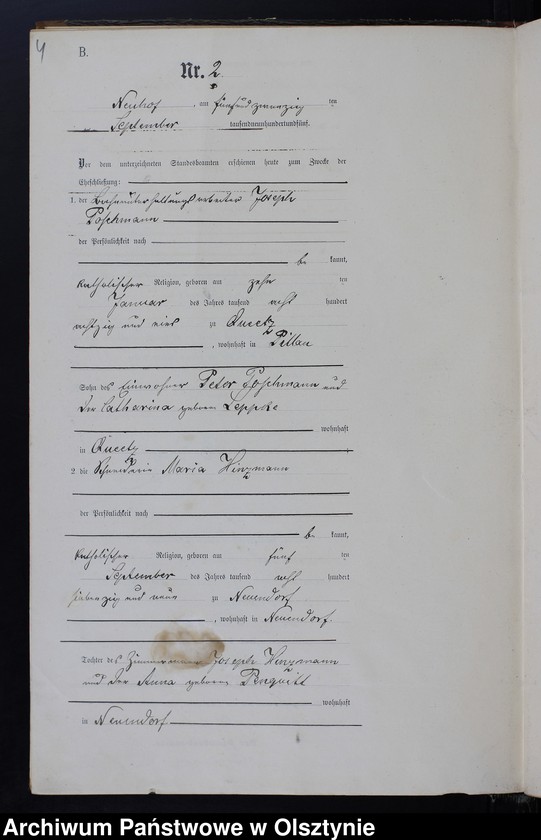 4
B.
Nr. 2.
Neuhof, am fünfundzwanzig ten
September tausendneunhundertundfünf.
Vor dem unterzeichneten Standesbeamten erschienen heute zum Zwecke der
Eheschließung:
1. der Joseph
Poschmann
der Persönlichkeit nach
be kannt,
katholischer Religion, geboren am zehn ten
Januar des Jahres tausend acht hundert
achtzig und eins zu Queetz
, wohnhaft in Pillau
Sohn des Einwohner Peter Poschmann und
der Catharina geboren Leppke
wohnhaft
in Queetz
2. die Schneiderin Maria Hinzmann
der Persönlichkeit nach
be kannt,
katholischer Religion, geboren am fünf ten
September des Jahres tausend acht hundert
siebenzig und neun zu Neuendorf
, wohnhaft in Neuendorf
Tochter des Zimmermann Joseph Hinzmann
und der Anna geboren Penquitt
wohnhaft
in Neuendorf
Archiwum Państwowe w Olsztynie